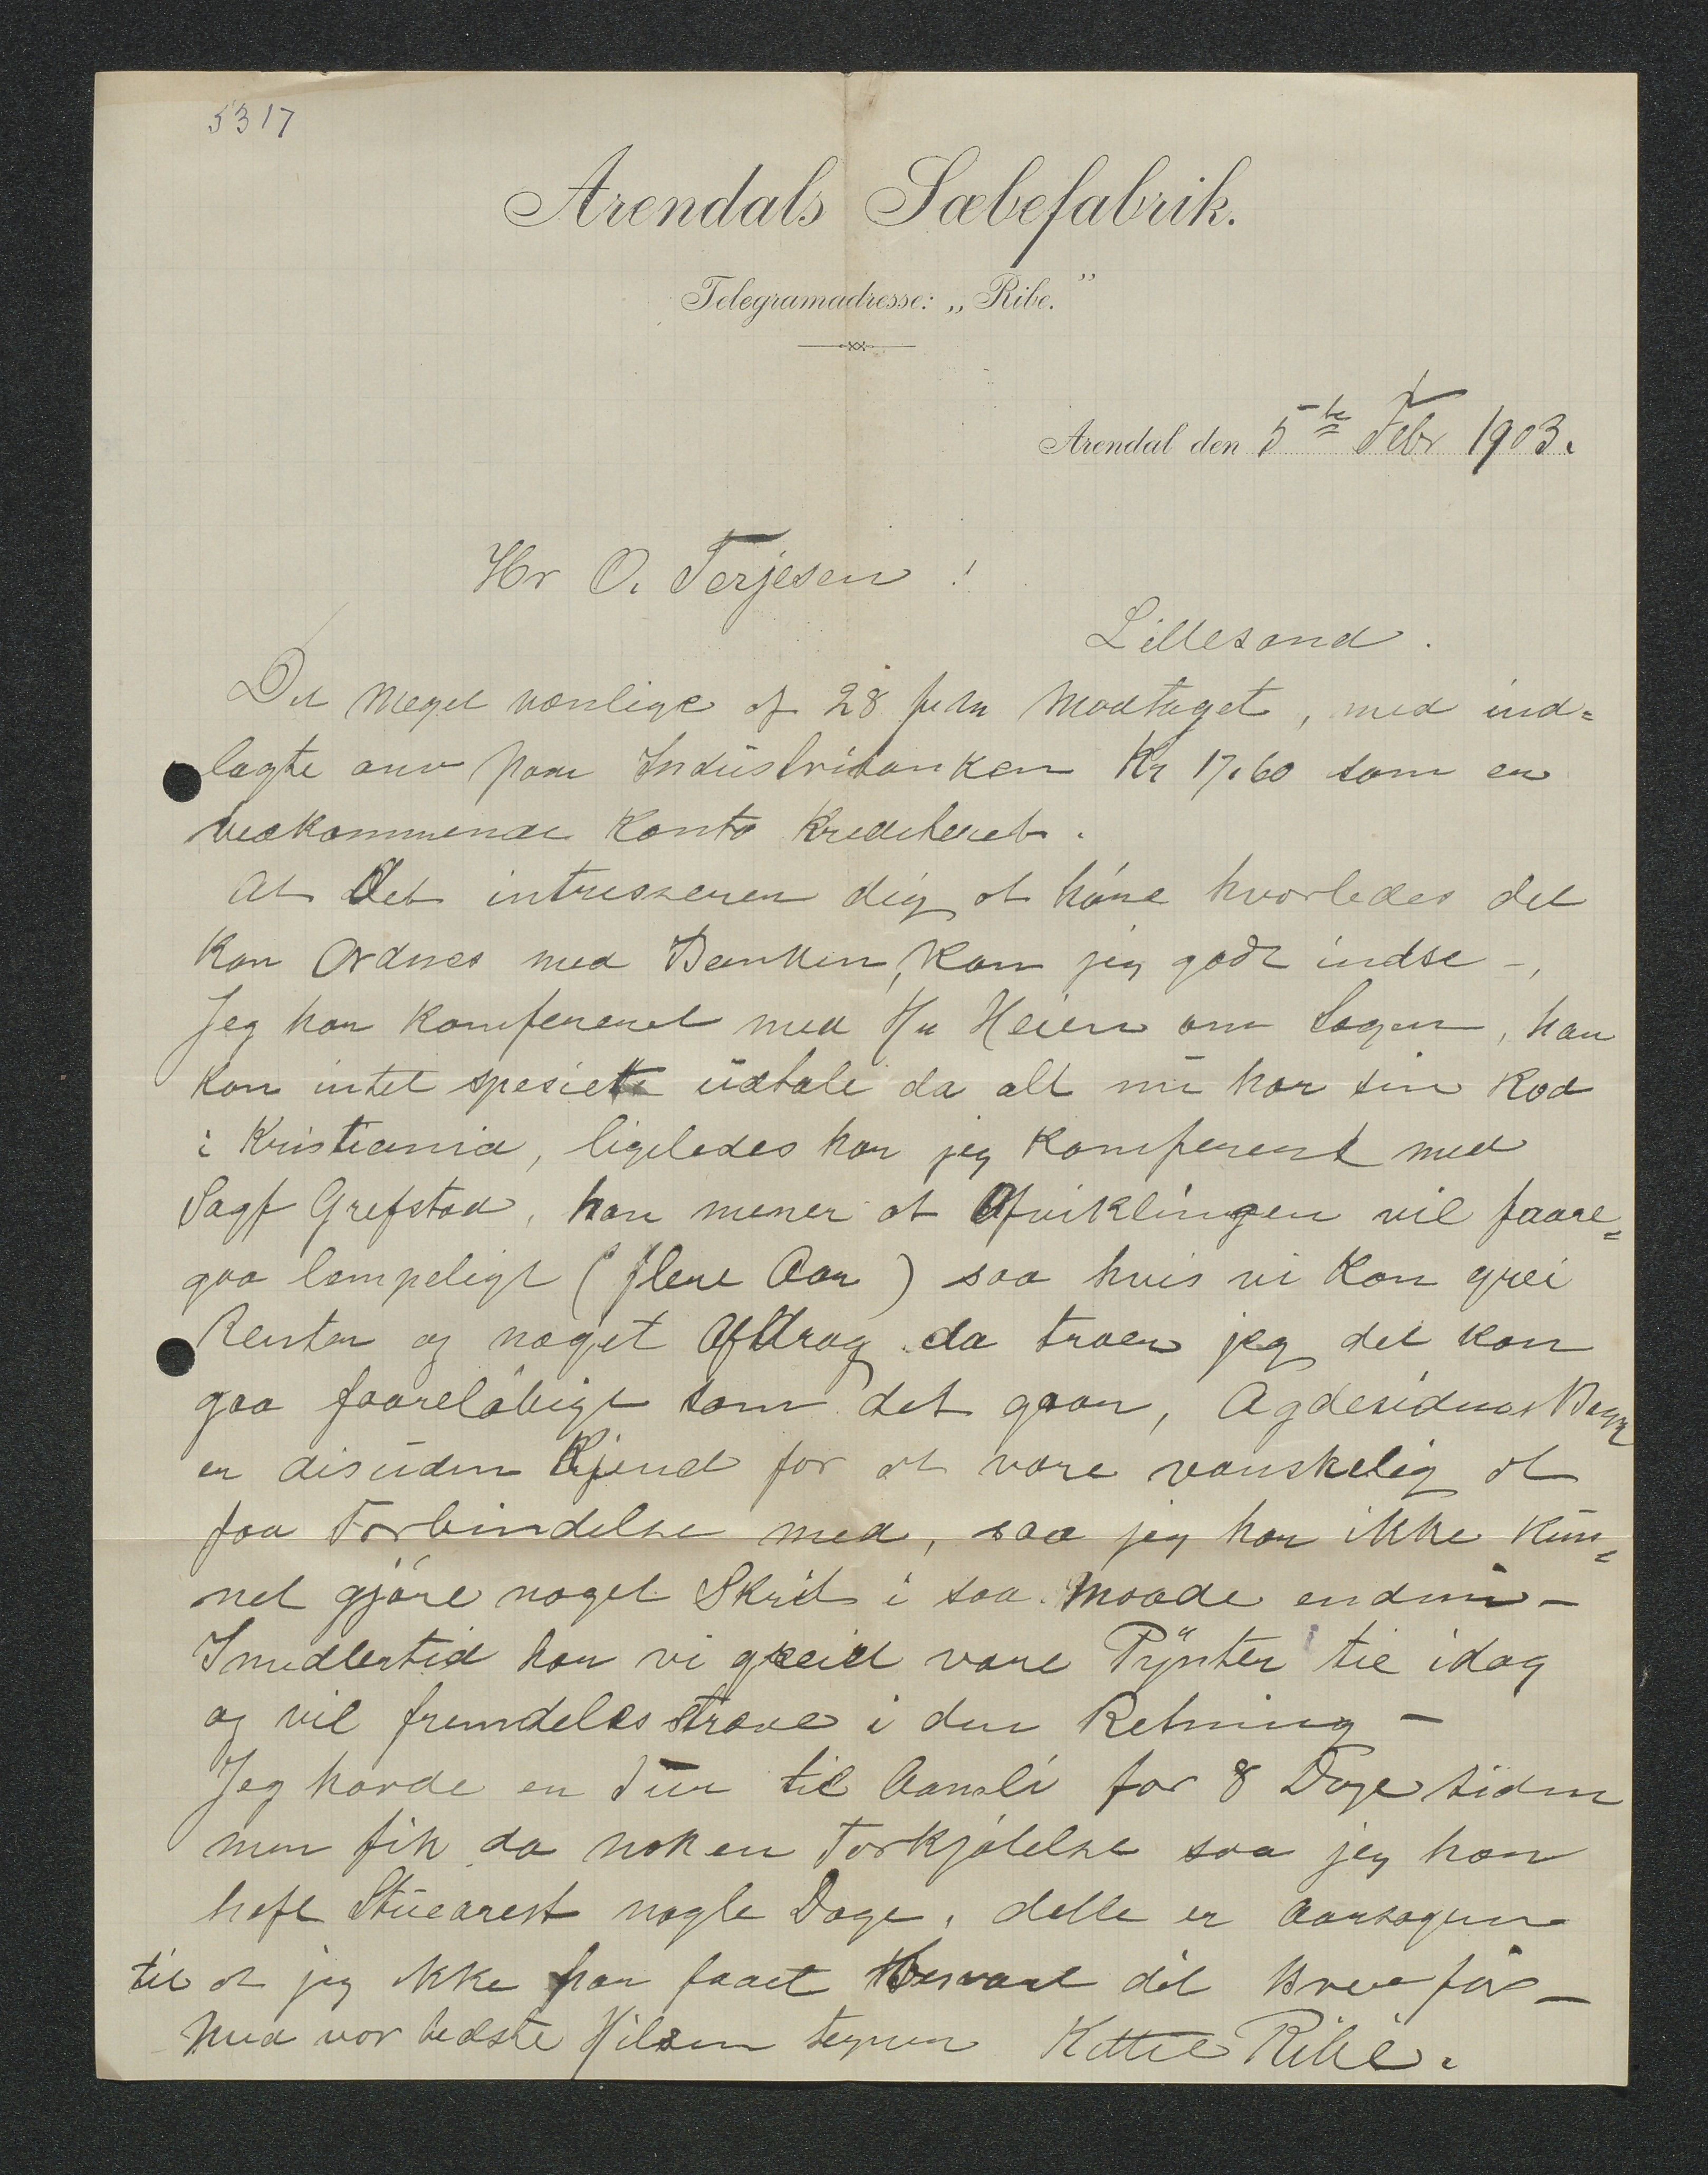 5317
Arendals Sæbefabrik.
Telegramadresse: „Ribe."
Arendal den 5te Febr 1903.
Hr O. Terjesen !
Lillesand.
Dit meget venlige af 28 f m Modtaget, med ind=
lagte anv paa Industribanken Kr 17.60 som er
vedkommende Konto Krediteret.
At Det intresserer dig at høre hvorledes det
kan Ordnes med Banken, kan jeg godt indse -,
Jeg har Konfereret med Hr Heien om Sagen, han
kan intet spesielt udtale da alt nu har sin Rod
i Kristiania, ligeledes har jeg Konfereret med
Sagf Grefstad, han mener at Afviklingen vil faare=
gaa lempeligt (flere Aar) saa hvis vi kan grei
Renter og noget Afdrag da troer jeg det kan
gaa faareløbigt som det gaar, Agdesidens Bank
er disuden Kjend for at være vanskelig at
faa Forbindelse med, saa jeg har ikke kun=
net gjøre noget Skrit i saa Maade endnu -
Imidlertid har vi greid vare Pynter til idag
og vil fremdeles stræve i den Retning -
Jeg havde en Tur til Aamli for 8 Dage siden
men fik da nok en Forkjølelse saa jeg har
haft Stuearest nogle Dage, dette er Aarsagen
til at jeg ikke har faaet Besvaret dit Brev før -
Med vor bedste Hilsen tegner Kittil Ribe.